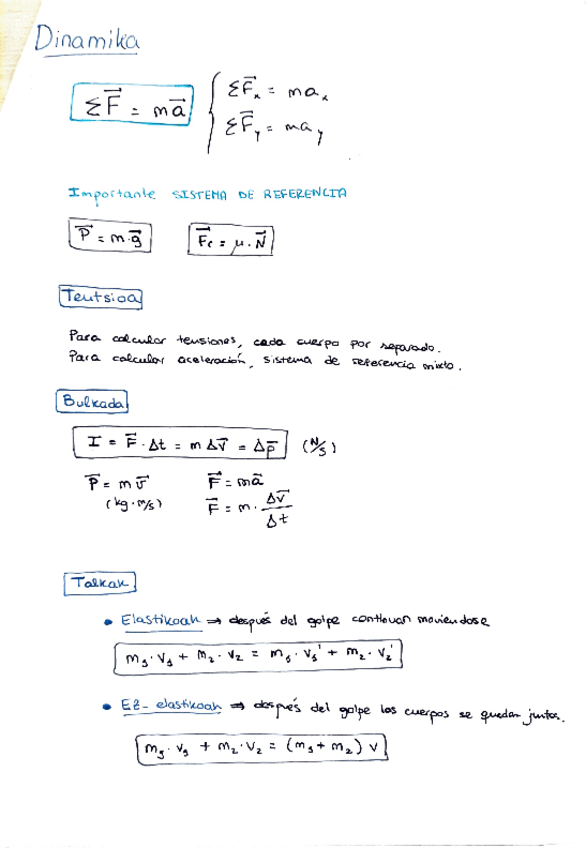 Dinamika
ΣF⃗ = ma⃗
ΣF⃗ₓ = maₓ
ΣF⃗ᵧ = maᵧ
Importante SISTEMA DE REFERENCIA
P⃗ = m·g⃗
F⃗c = μ·N⃗
Teutsioa
Para calcular tensiones, cada cuerpo por separado.
Para calcular aceleración, sistema de referencia mixto.
Bulkada
I = F⃗·Δt = mΔv⃗ = Δp⃗ (N/s)
P⃗ = mv⃗
F⃗ = ma⃗
(kg·m/s)
F⃗ = m·Δv⃗/Δt
Talkak
• Elastikoak ⇒ después del golpe continuan moviendose
m₁·v₁ + m₂·v₂ = m₁·v₁' + m₂·v₂'
• Ez-elastikoak ⇒ después del golpe los cuerpos se quedan juntos.
m₁·v₁ + m₂·v₂ = (m₁+m₂) v